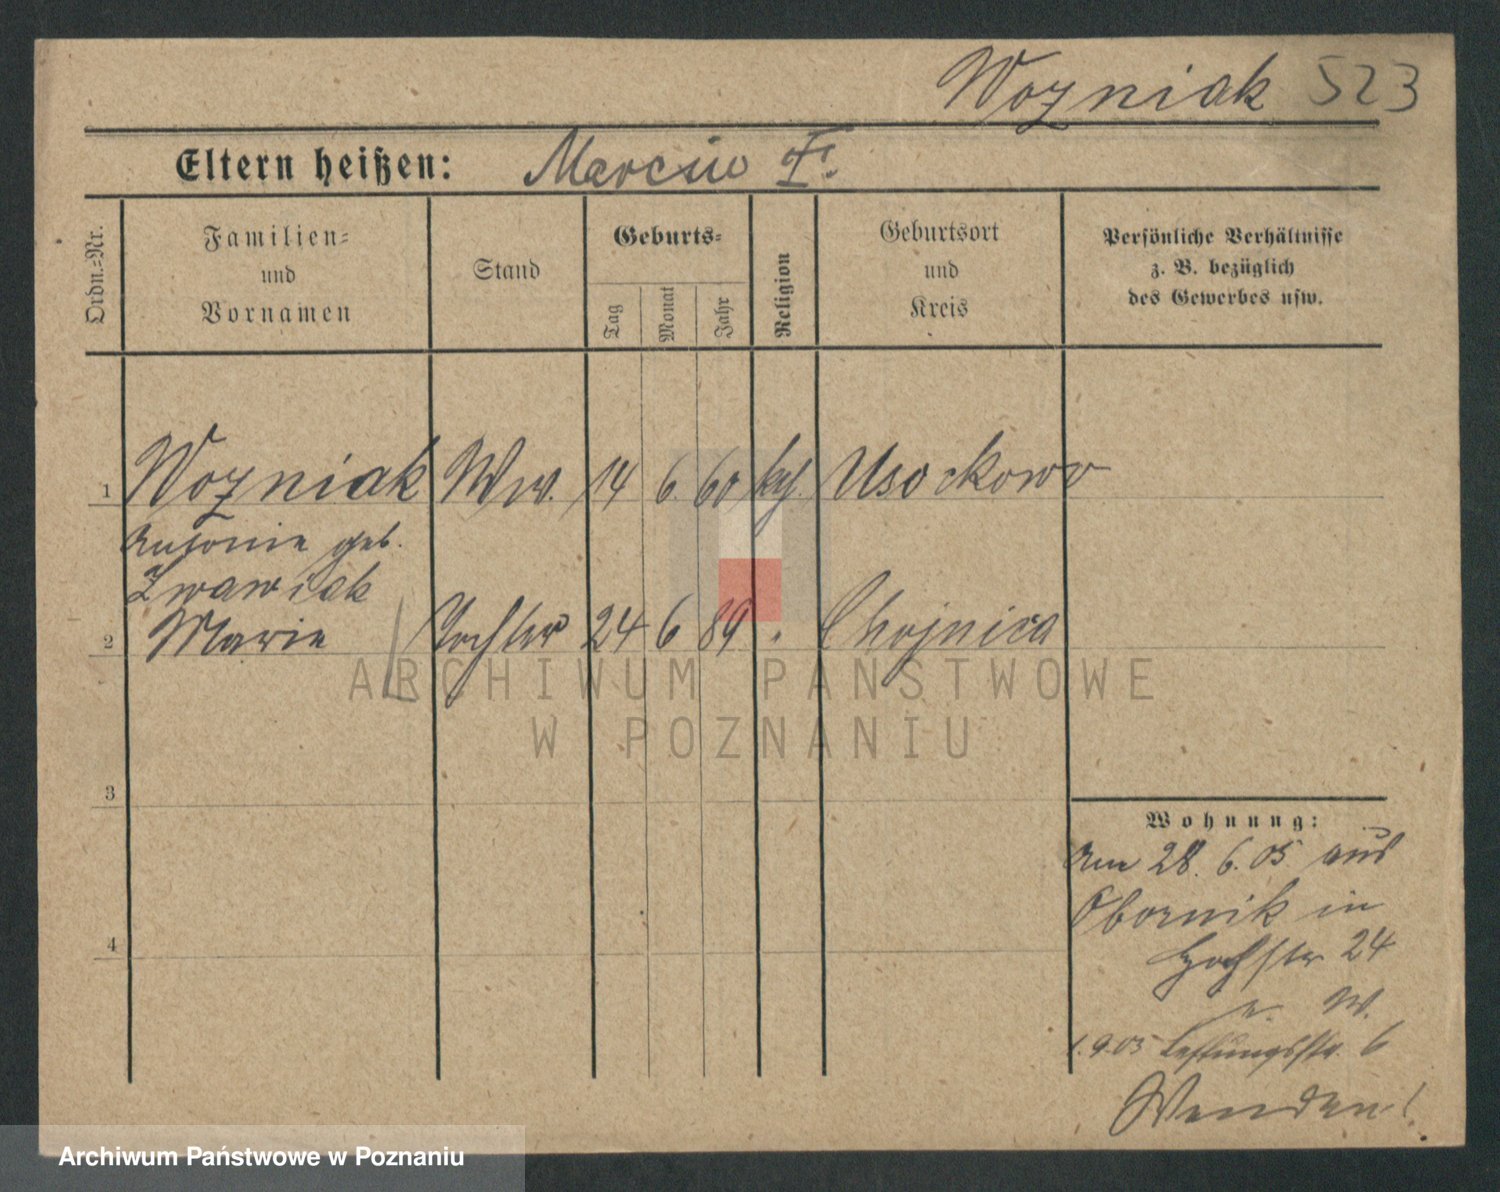 Wozniak 523
Eltern heißen: Marcin F.
Ordn.-Nr.
Familien-
und
Vornamen
Stand
Geburts-
Tag
Monat
Jahr
Religion
Geburtsort
und
Kreis
Persönliche Verhältnisse
z. B. bezüglich
des Gewerbes usw.
1 Wozniak Ww. 14 6. 60 kth. Usockowo
Antonie geb.
Zwawiak
2 Marie Tochter 24 6 89 " Chojnica
ARCHIWUM PAŃSTWOWE
W POZNANIU
3
4
Wohnung:
Am 28. 6. 05 aus
Obornik in
24
W.
1.9.05 Lessingstr. 6
Wenden!
Archiwum Państwowe w Poznaniu